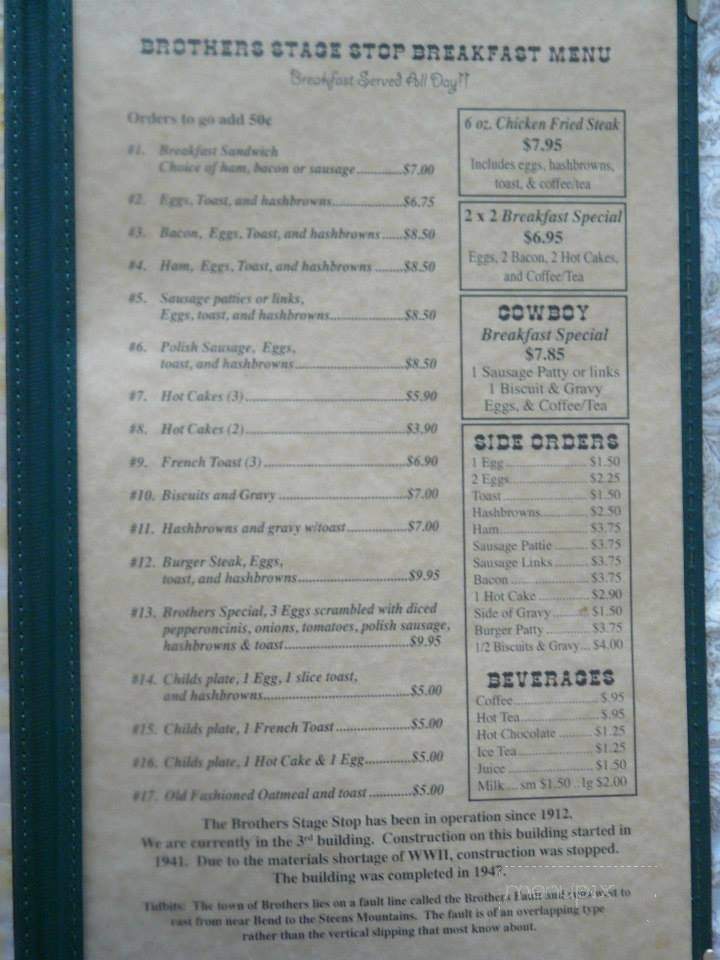 BROTHERS STAGE STOP BREAKFAST MENU
Breakfast Served All Day!!
Orders to go add 50¢
#1. Breakfast Sandwich
Choice of ham, bacon or sausage.............$7.00
#2. Eggs, Toast, and hashbrowns....................$6.75
#3. Bacon, Eggs, Toast, and hashbrowns......$8.50
#4. Ham, Eggs, Toast, and hashbrowns........$8.50
#5. Sausage patties or links,
Eggs, toast, and hashbrowns.....................$8.50
#6. Polish Sausage, Eggs,
toast, and hashbrowns..............................$8.50
#7. Hot Cakes (3).............................................$5.90
#8. Hot Cakes (2).............................................$3.90
#9. French Toast (3)........................................$6.90
#10. Biscuits and Gravy....................................$7.00
#11. Hashbrowns and gravy w/toast.................$7.00
#12. Burger Steak, Eggs,
toast, and hashbrowns..............................$9.95
#13. Brothers Special, 3 Eggs scrambled with diced
pepperoncinis, onions, tomatoes, polish sausage,
hashbrowns & toast...................................$9.95
#14. Childs plate, 1 Egg, 1 slice toast,
and hashbrowns.........................................$5.00
#15. Childs plate, 1 French Toast.....................$5.00
#16. Childs plate, 1 Hot Cake & 1 Egg.............$5.00
#17. Old Fashioned Oatmeal and toast............$5.00
6 oz. Chicken Fried Steak
$7.95
Includes eggs, hashbrowns,
toast, & coffee/tea
2 x 2 Breakfast Special
$6.95
Eggs, 2 Bacon, 2 Hot Cakes,
and Coffee/Tea
COWBOY
Breakfast Special
$7.85
1 Sausage Patty or links
1 Biscuit & Gravy
Eggs, & Coffee/Tea
SIDE ORDERS
1 Egg........................$1.50
2 Eggs.......................$2.25
Toast.........................$1.50
Hashbrowns..............$2.50
Ham...........................$3.75
Sausage Pattie..........$3.75
Sausage Links..........$3.75
Bacon........................$3.75
1 Hot Cake................$2.90
Side of Gravy............$1.50
Burger Patty..............$3.75
1/2 Biscuits & Gravy...$4.00
BEVERAGES
Coffee.........................$.95
Hot Tea.......................$.95
Hot Chocolate..........$1.25
Ice Tea......................$1.25
Juice.........................$1.50
Milk....sm $1.50..lg $2.00
The Brothers Stage Stop has been in operation since 1912.
We are currently in the 3rd building. Construction on this building started in
1941. Due to the materials shortage of WWII, construction was stopped.
The building was completed in 1947.
Tidbits: The town of Brothers lies on a fault line called the Brothers Fault and runs west to
east from near Bend to the Steens Mountains. The fault is of an overlapping type
rather than the vertical slipping that most know about.
menupix